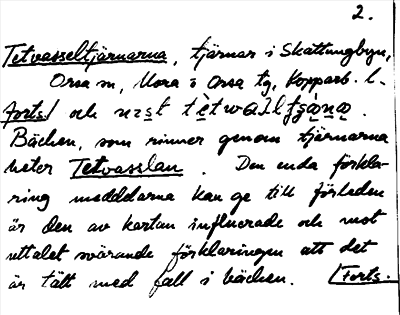 2.
Tetvasseltjärnarna, tjärnar i Skattungbyn,
Orsa sn, Mora o Orsa tg, Kopparb. l.
Forts./ och nrst
Bäcken, som rinner genom tjärnarna
heter Tetvasslan. Den enda förkla-
ring meddelarna kan ge till förleden
är den av kartan influerade och mot
uttalet svarande förklaringen att det
är tätt med fall i bäcken. /Forts.